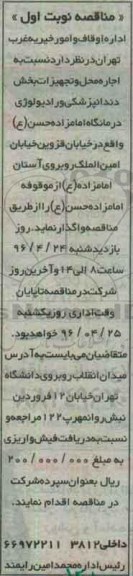 « مناقصه نوبت اول »
اداره اوقاف و امور خیریه غرب
تهران در نظر دارد نسبت به
اجاره محل و تجهیزات بخش
دندانپزشکی و رادیولوژی
درمانگاه امامزاده حسن (ع)
واقع در خیابان قزوین خیابان
امین الملک روبروی آستان
امامزاده (ع) از موقوفه
امامزاده حسن (ع) را از طریق
مناقصه واگذار نماید. روز
بازدید شنبه ۹۶/۴/۲۴
ساعت ۸ الی ۱۴ و آخرین روز
شرکت در مناقصه تا پایان
وقت اداری روز یکشنبه
۹۶/۰۴/۲۵ خواهد بود.
متقاضیان می بایست به آدرس
میدان انقلاب روبروی دانشگاه
تهران خیابان ۱۲ فروردین
نبش روانمهر پ ۱۲۲ مراجعه و
نسبت به دریافت فیش واریزی
به مبلغ ۲۰۰/۰۰۰/۰۰۰
ریال بعنوان سپرده شرکت
در مناقصه اقدام نمایند.
۶۶۹۷۲۲۱۱ داخلی ۳۸۱۲
رئیس اداره محمد امین رایمند